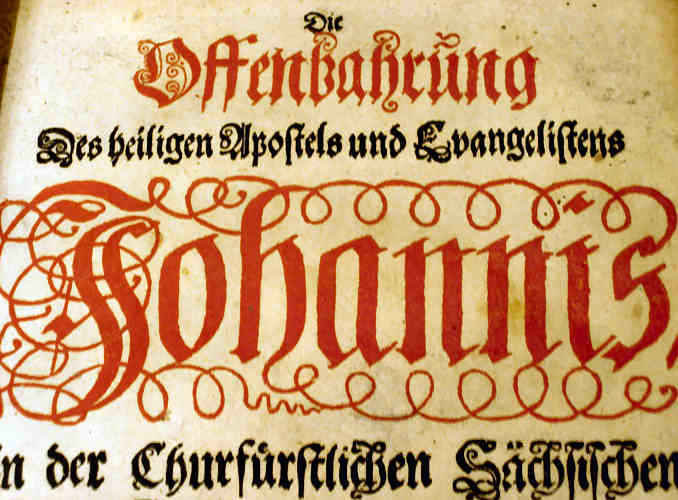 Die
Offenbahrung
Des heiligen Apostels und Evangelistens
Johannis,
in der Churfürstlichen Sächsischen